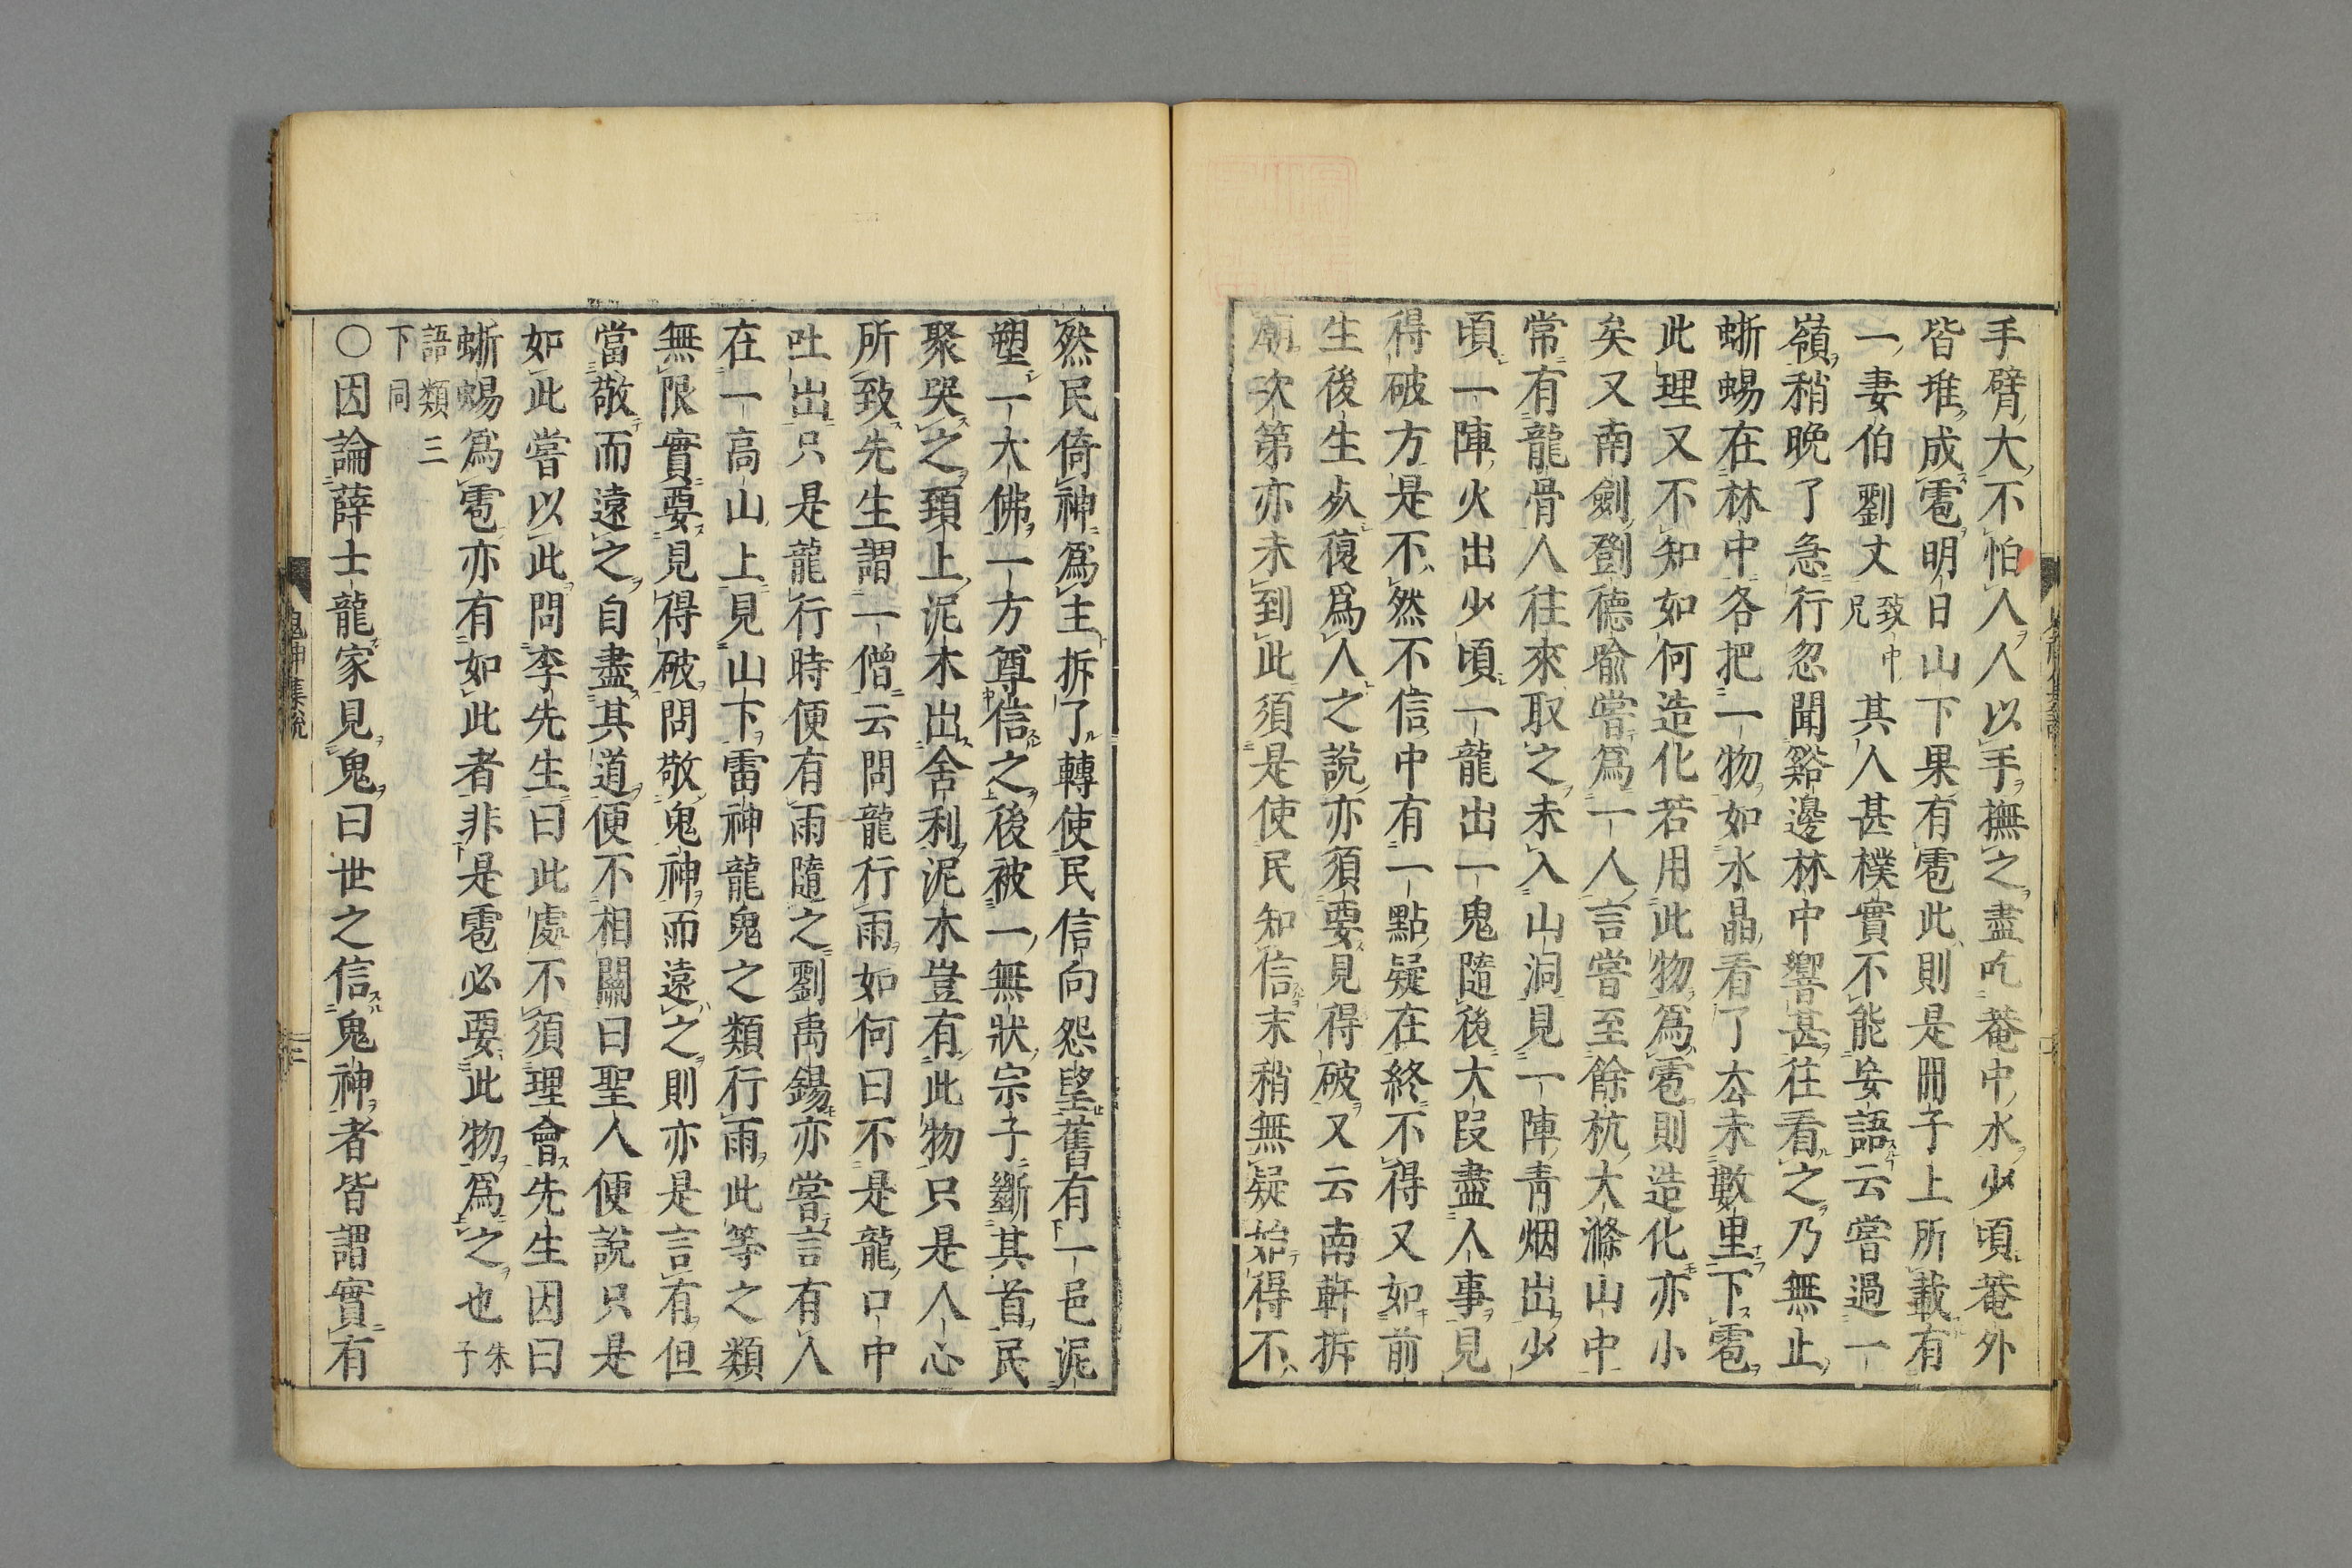 手臂大不怕人人以手撫之盡吃菴中水少頃菴外
皆堆成雹明日山下果有雹此則是冊子上所載有
一妻伯劉丈致中兄其人甚樸實不能妄語云嘗過一
嶺稍晩了急行忽聞谿邊林中響甚往看之乃無止
蜥蜴在林中各把一物如水晶看了去未數里下雹
此理又不知如何造化若用此物爲雹則造化亦小
矣又南劍鄧德喩嘗爲一人言嘗至餘杭大滌山中
常有龍骨人往來取之未入山洞見一陣靑烟出少
頃一陣火出少頃一龍出一鬼隨後大段盡人事見
得破方是不然不信中有一點疑在終不得又如前
生後生死復爲人之說亦須要見得破又云南軒拆
廟次第亦未到此須是使民知信末稍無疑始得不
然民倚神爲主拆了轉使民信向怨望舊有一邑泥
塑一大佛一方尊信之後被一無狀宗子斷其首民
聚哭之頚上泥木出舍利泥木豈有此物只是人心
所致先生謂一僧云問龍行雨如何曰不是龍口中
吐出只是龍行時便有雨隨之劉禹錫亦嘗言有人
在一高山上見山下雷神龍鬼之類行雨此等之類
無限實要見得破問敬鬼神而遠之則亦是言有但
當敬而遠之自盡其道便不相關曰聖人便說只是
如此嘗以此問李先生曰此處不須理會先生因曰
蜥蜴爲雹亦有如此者非是雹必要此物爲之也朱子
語類三
下同
○因論薛士龍家見鬼曰世之信鬼神者皆謂實有
鬼神集說